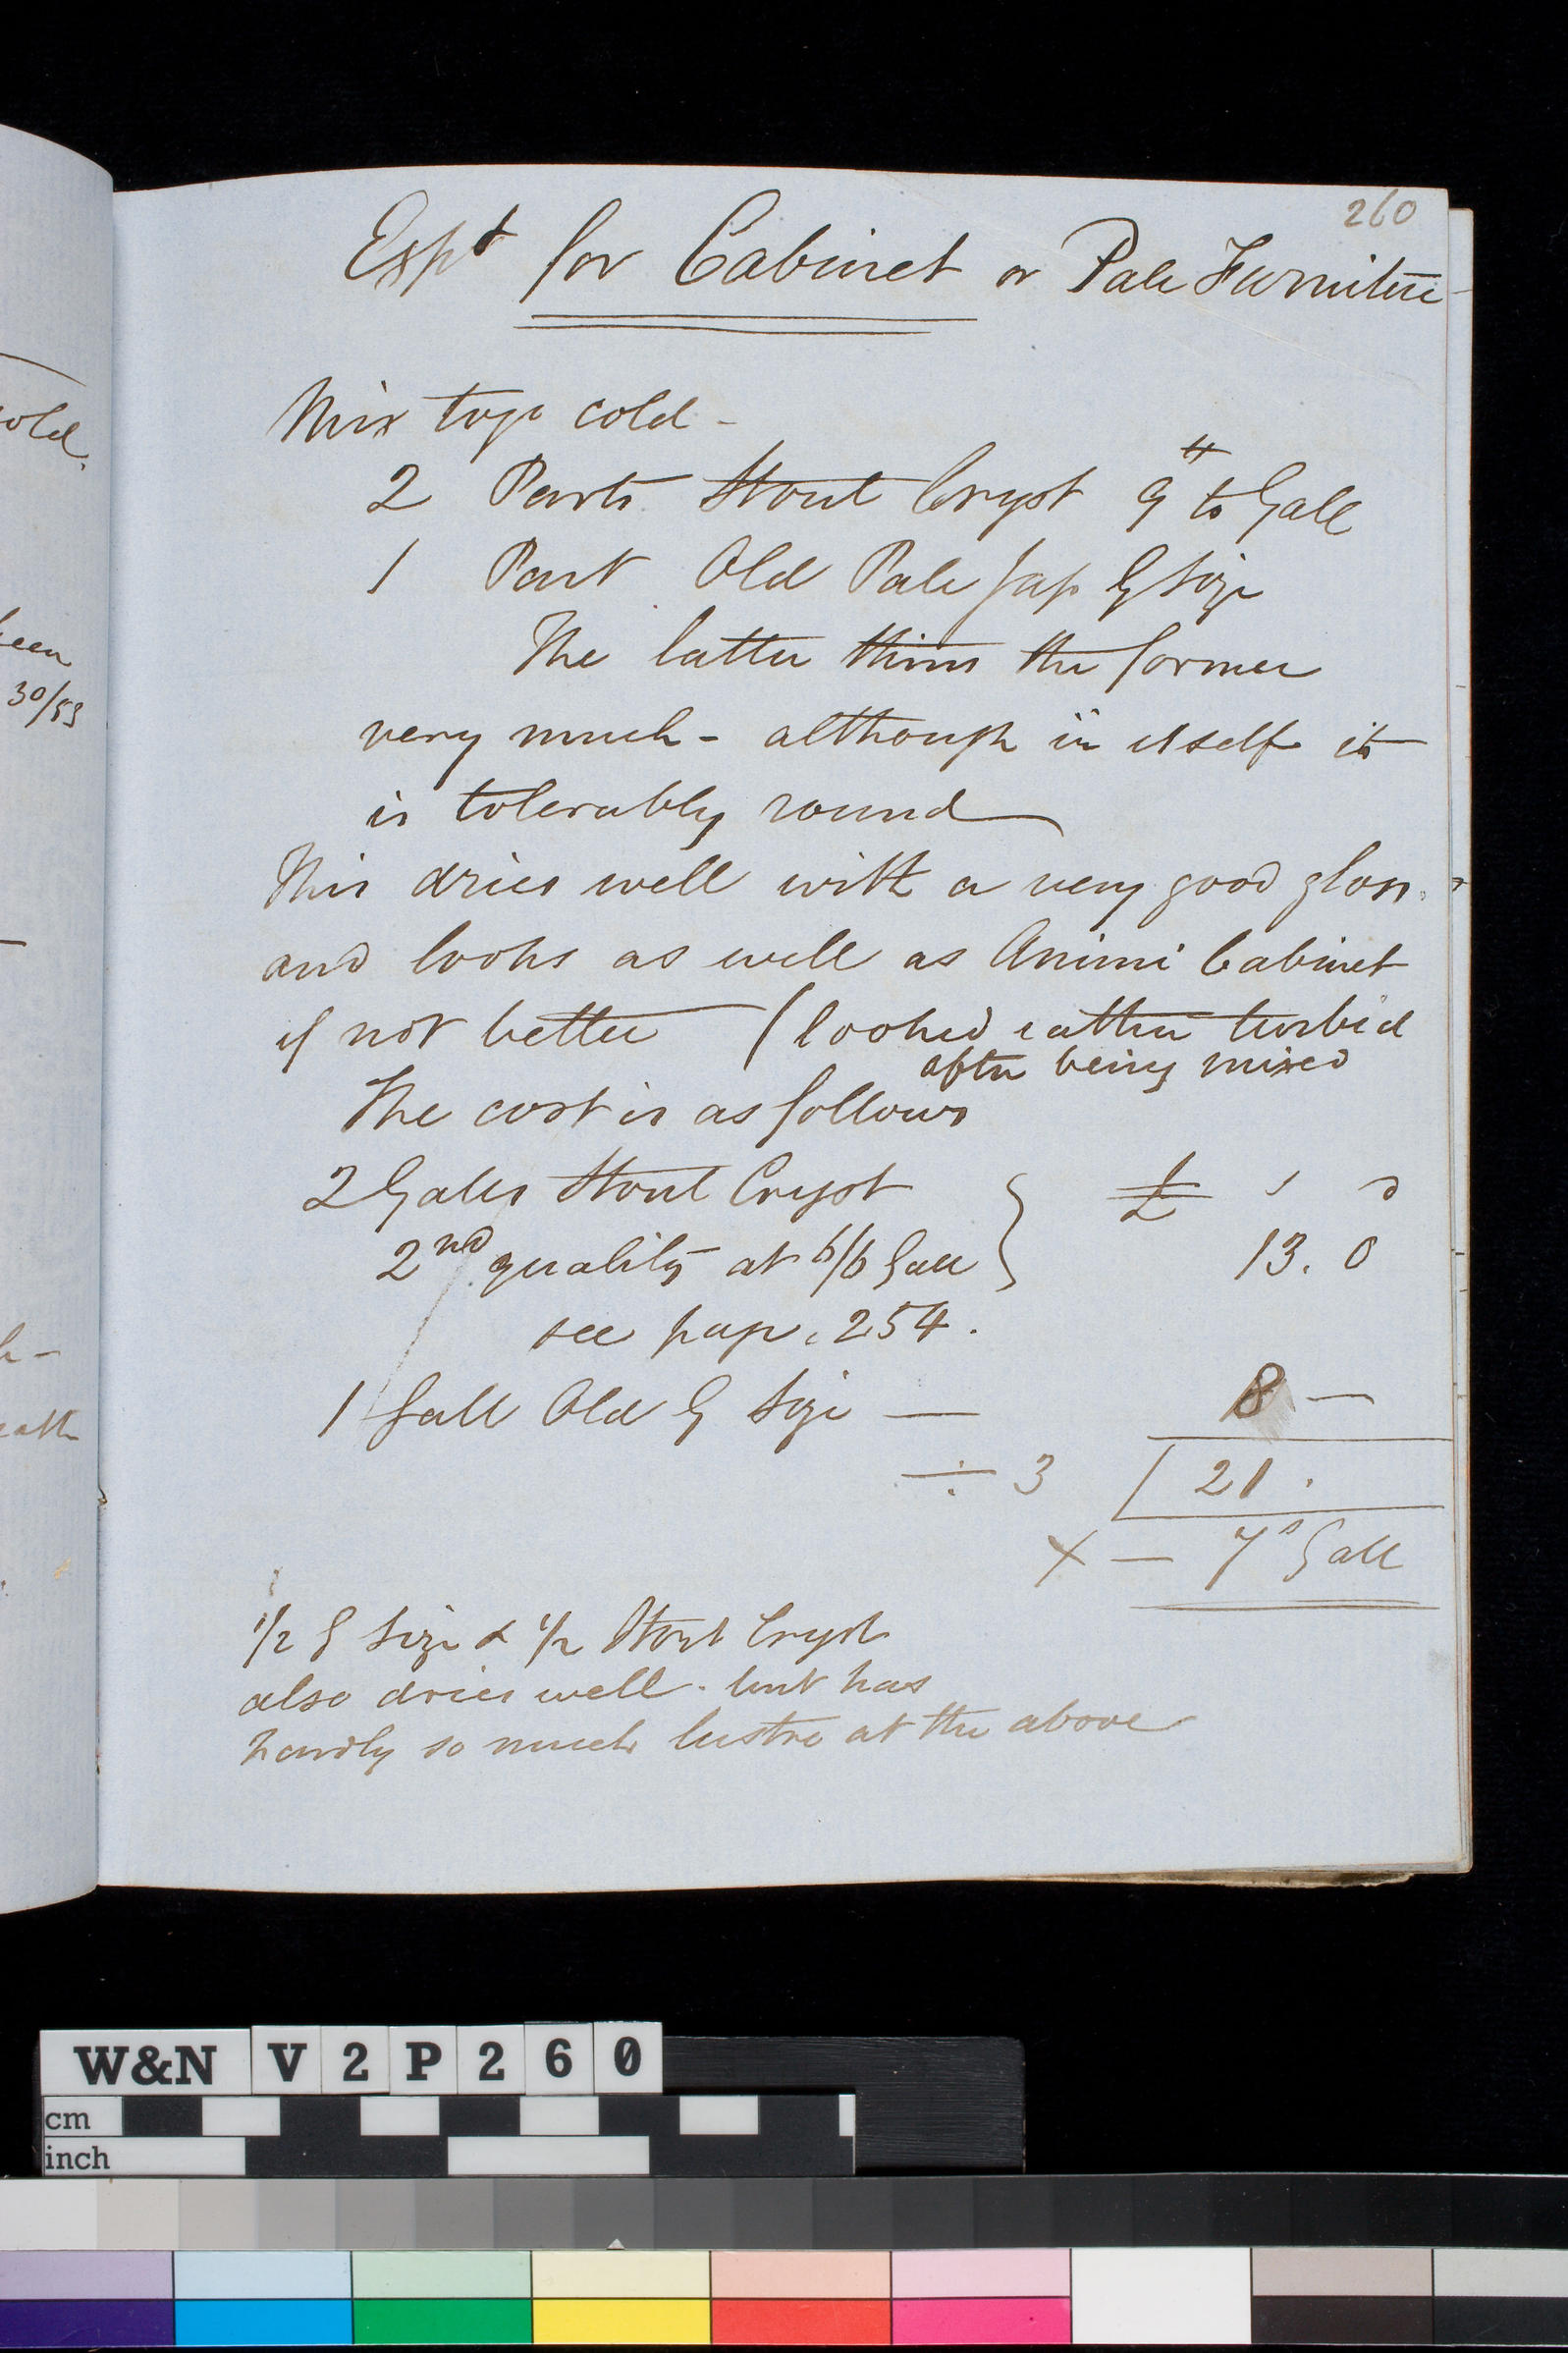 260
Expt for Cabinet or Pale Furniture
Mix togr cold -
2 Parts Stout Cryst 9 lb to Gall
1 Part Old Pale Jap G Size
The latter thins the former
very much - although in itself it
is tolerably round
This dries well with a very good gloss.
and looks as well as Animi Cabinet
if not better (looked rather turbid
after being mixed
The cost is as follows
2 Galls Stout Cryst £ s d
2nd quality at 6/6 Gall 13. 0
see page 254.
1 Gall Old G Size — 8 —
÷ 3 21 .
X — 7s Gall
1/2 G Size & 1/2 Stout Cryst
also dries well. but has
hardly so much lustre at the above
old.
been
30/53
W&N V2P260
cm
inch